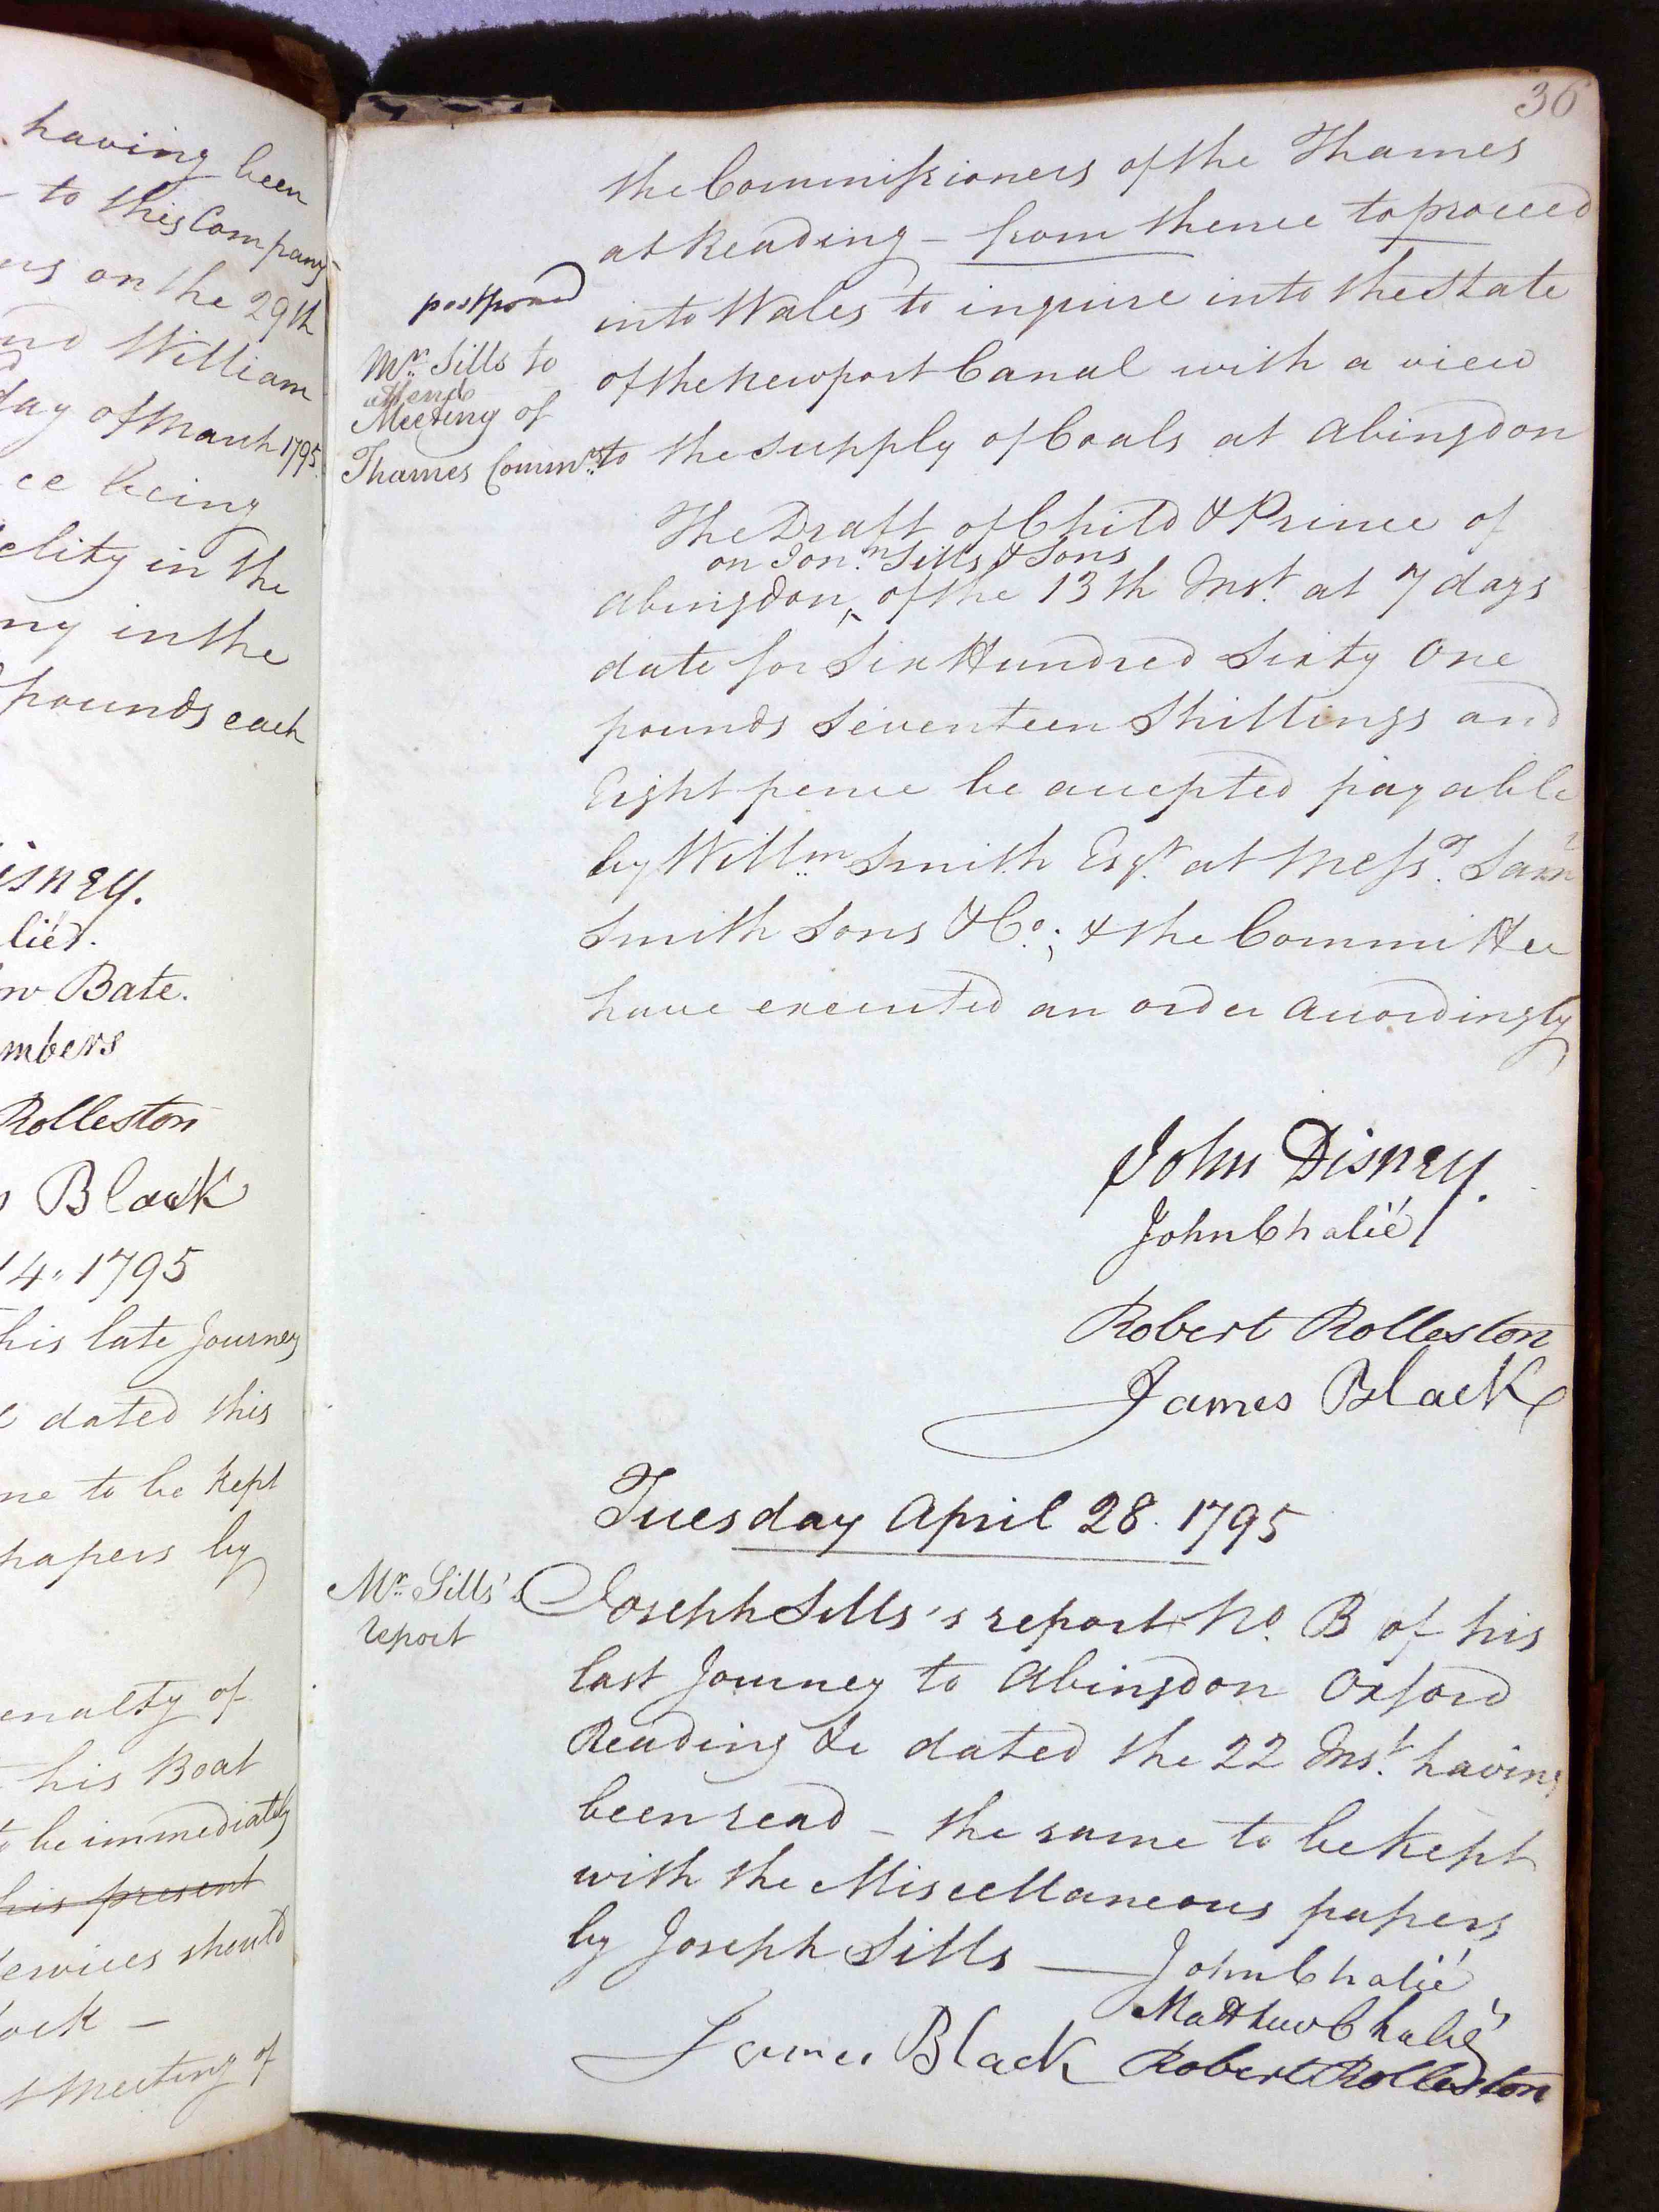 having been
to this Company
on the 29th
William
day of March 1795
being
in the
in the
pounds each
Bate.
Rolleston
Black
14, 1795
his late Journey
dated this
to be kept
papers by
of
his Boat
to be immediately
his present
should
Meeting of
36
the Commissioners of the Thames
at Reading – from thence to proceed
postponed
into Wales to inquire into the State
Mr. Sills to
attend
Meeting of
Thames Commrs.
of the Newport Canal with a view
to the supply of Coals at Abingdon
The Draft of Child & Prince of
on Jonn. Sills & Sons
Abingdon, ‸ of the 13th Inst. at 7 days
date for Six Hundred Sixty One
pounds Seventeen Shillings and
Eight pence be accepted payable
by Willm. Smith Esqr. at Messrs. Sam
Smith Sons & Co.; & the Committee
have executed an order accordingly
John Disney.
John Chalié
Robert Rolleston
James Black
Tuesday April 28. 1795
Mr. Sills's
report
Joseph Sills's report No. B of his
last Journey to Abingdon Oxford
Reading &c dated the 22 Inst. having
been read – the same to be kept
with the Miscellaneous papers
by Joseph Sills —
John Chalié
Matthew Chalié
James Black Robert Rolleston